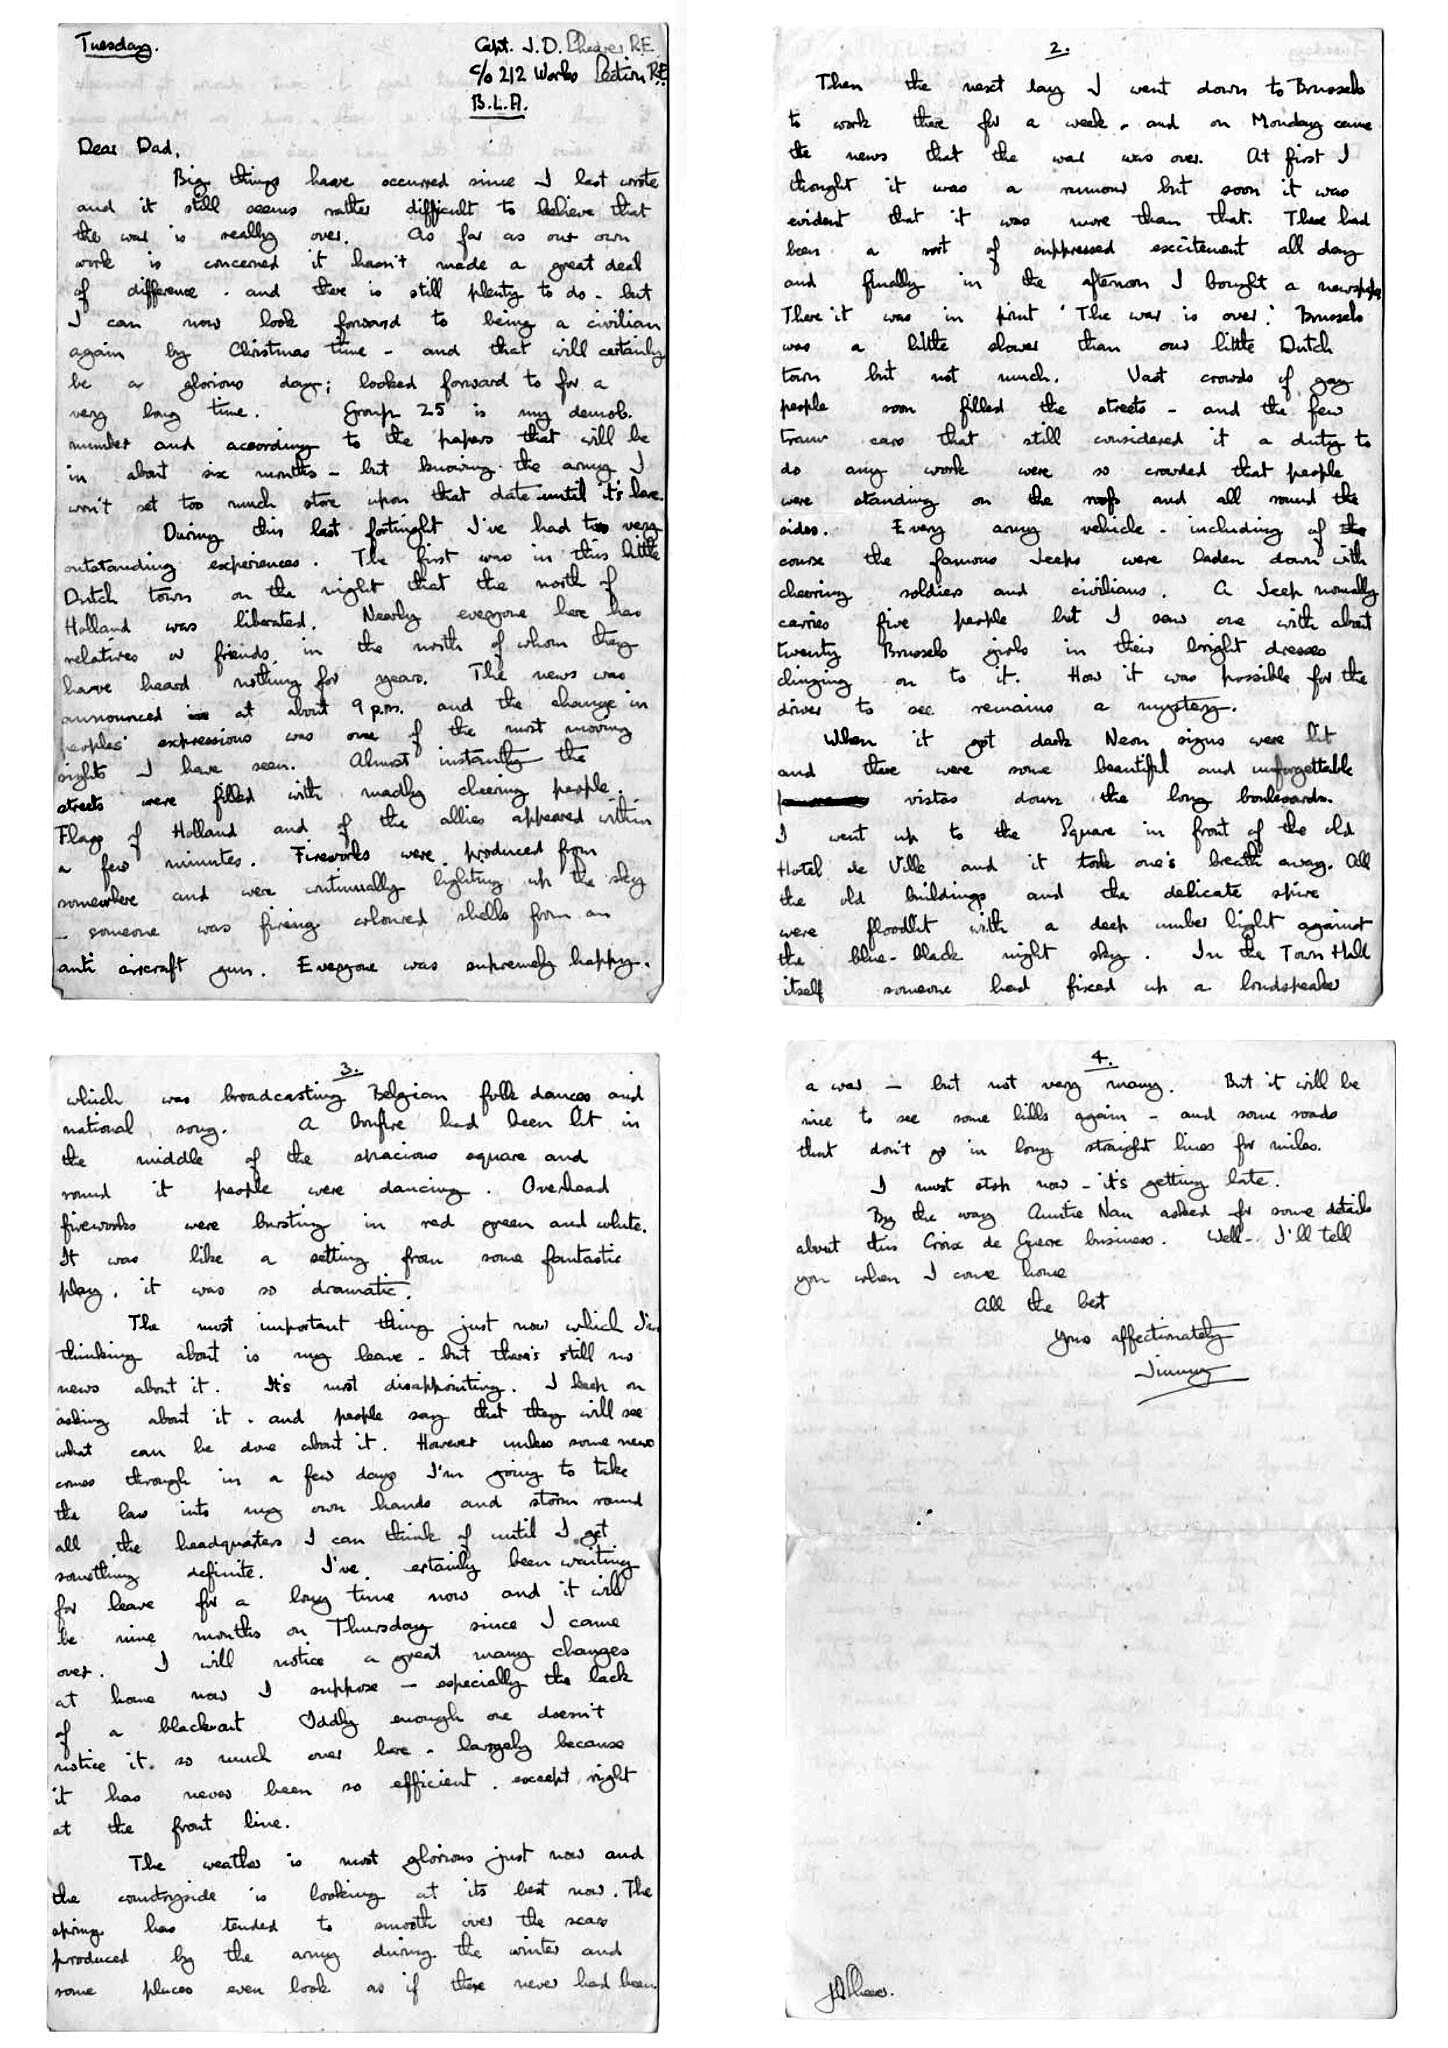 Tuesday.
Capt. J. D. R.E.
c/o 212 Works Section R.E.
B.L.A.
Dear Dad,
Big things have occurred since I last wrote
and it still seems rather difficult to believe that
the war is really over. As far as our own
work is concerned it hasn't made a great deal
of difference - and there is still plenty to do - but
I can now look forward to being a civilian
again by Christmas time - and that will certainly
be a glorious day; looked forward to for a
very long time. Group 25 is my demob.
number and according to the papers that will be
in about six months - but knowing the army I
won't set too much store upon that date until it's here.
During this last fortnight I've had two very
outstanding experiences. The first was in this little
Dutch town on the night that the north of
Holland was liberated. Nearly everyone here has
relatives or friends in the north of whom they
have heard nothing for years. The news was
announced at about 9 p.m. and the change in
peoples' expressions was one of the most moving
sights I have seen. Almost instantly the
streets were filled with madly cheering people.
Flags of Holland and of the allies appeared within
a few minutes. Fireworks were produced from
somewhere and were continually lighting up the sky
- someone was firing coloured shells from an
anti aircraft gun. Everyone was supremely happy.
2.
Then the next day I went down to Brussels
to work there for a week - and on Monday came
the news that the war was over. At first I
thought it was a rumour but soon it was
evident that it was more than that. There had
been a sort of suppressed excitement all day
and finally in the afternoon I bought a newspaper
There it was in print 'The war is over.' Brussels
was a little slower than our little Dutch
town but not much. Vast crowds of gay
people soon filled the streets - and the few
tram cars that still considered it a duty to
do any work were so crowded that people
were standing on the roofs and all round the
sides. Every army vehicle - including of the
course the famous Jeeps were laden down with
cheering soldiers and civilians. A Jeep normally
carries five people but I saw one with about
twenty Brussels girls in their bright dresses
clinging on to it. How it was possible for the
driver to see remains a mystery.
When it got dark Neon signs were lit
and there were some beautiful and unforgettable
vistas down the long boulevards.
I went up to the Square in front of the old
Hotel de Ville and it took one's breath away. All
the old buildings and the delicate spire
were floodlit with a deep umber light against
the blue-black night sky. In the Town Hall
itself someone had fixed up a loudspeaker
3.
which was broadcasting Belgian folk dances and
national song. A bonfire had been lit in
the middle of the spacious square and
round it people were dancing. Overhead
fireworks were bursting in red green and white.
It was like a setting from some fantastic
play, it was so dramatic.
The most important thing just now which I'm
thinking about is my leave - but there's still no
news about it. It's most disappointing. I keep on
asking about it - and people say that they will see
what can be done about it. However unless some news
comes through in a few days I'm going to take
the law into my own hands and storm round
all the headquarters I can think of until I get
something definite. I've certainly been waiting
for leave for a long time now and it will
be nine months on Thursday since I came
over. I will notice a great many changes
at home now I suppose - especially the lack
of a blackout Oddly enough one doesn't
notice it so much over here - largely because
it has never been so efficient. except right
at the front line.
The weather is most glorious just now and
the countryside is looking at its best now. The
spring has tended to smooth over the scars
produced by the army during the winter and
some places even look as if there never had been
4.
a war - but not very many. But it will be
nice to see some hills again - and some roads
that don't go in long straight lines for miles.
I must stop now - it's getting late.
By the way Auntie Nan asked for some details
about this Croix de Guerre business. Well - I'll tell
you when I come home
All the best
Yours affectionately
Jimmy